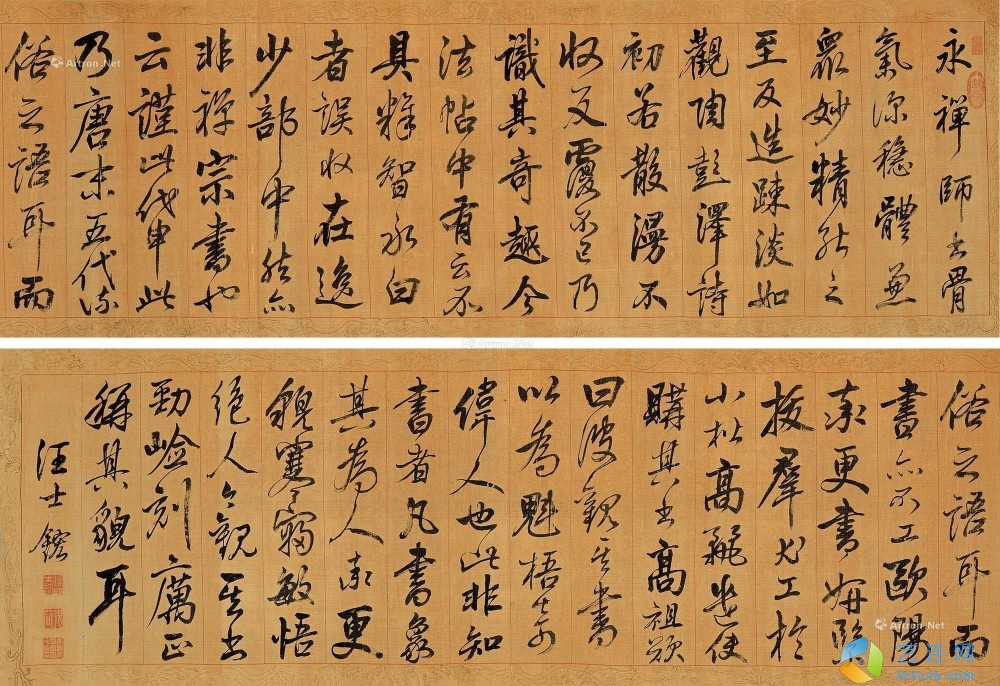 永禪師書骨
氣深穩體兼
眾妙精能之
至反造疎淡如
觀陶彭澤詩
初若散漫不
收反覆不已乃
識其奇越今
法帖中有云不
具釋智永白
者誤收在逸
少部中然亦
非禪宗書也
云謹此代申此
乃唐末五代流
俗之語耳而
俗之語耳而
書亦不工歐陽
率更書妍緊
拔羣尤工於
小楷高麗遣使
購其書高祖歎
曰彼觀其書
以為魁梧奇
偉人也此非知
書者凡書象
其為人率更
貌寒寢敏悟
絕人今觀其書
勁嶮刻厲正
稱其貌耳
汪士鋐
Artron.Net
Artron.Net
Artron.Net